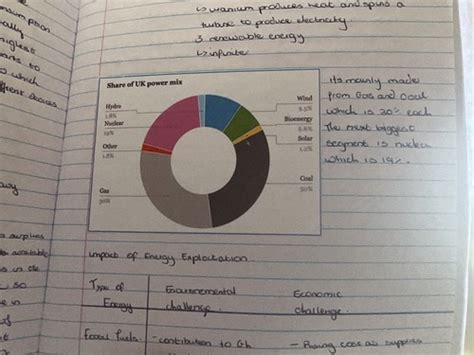 nsumption
ally
highest
arts to
which
↳ uranium produces heat and spins a
turbine to produce electricity
3. renewable energy
↳ infinite
Share of UK power mix
Hydro
1.8%
Nuclear
19%
Other
1.8%
Gas
30%
Wind
9.5%
Bioenergy
6.8%
Solar
1.2%
Coal
30%
Its mainly made
from Gas and Coal
which is 30% each
The next biggest
segment is nuclear
which is 19%.
supplies
available
is in the
so
e in
of
Impact of Energy Exploitation
Type of
Energy
Environmental
challenge
Economic
challenge
Fossil fuels
- contribution to Gh
- Rising cost as supplies